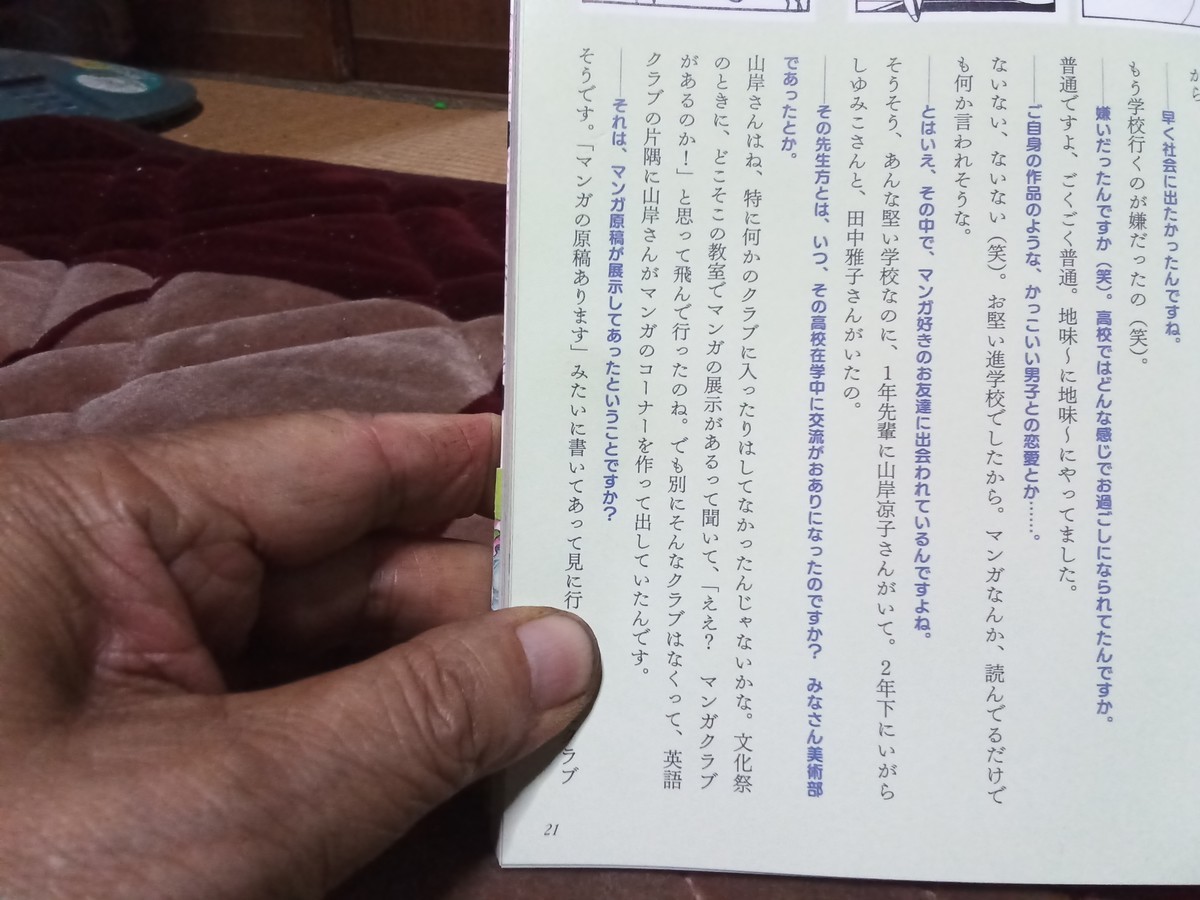 から
――早く社会に出たかったんですね。
もう学校行くのが嫌だったの（笑）。
――嫌いだったんですか（笑）。高校ではどんな感じでお過ごしになられてたんですか。
普通ですよ、ごくごく普通。地味〜に地味〜にやってました。
――ご自身の作品のような、かっこいい男子との恋愛とか……。
ないない、ないない（笑）。お堅い進学校でしたから。マンガなんか、読んでるだけで
も何か言われそうな。
――とはいえ、その中で、マンガ好きのお友達に出会われているんですよね。
そうそう、あんな堅い学校なのに、1年先輩に山岸凉子さんがいて。2年下にいがら
しゆみこさんと、田中雅子さんがいたの。
――その先生方とは、いつ、その高校在学中に交流がおありになったのですか？　みなさん美術部
であったとか。
山岸さんはね、特に何かのクラブに入ったりはしてなかったんじゃないかな。文化祭
のときに、どこそこの教室でマンガの展示があるって聞いて、「ええ？　マンガクラブ
があるのか！」と思って飛んで行ったのね。でも別にそんなクラブはなくって、英語
クラブの片隅に山岸さんがマンガのコーナーを作って出していたんです。
――それは、マンガ原稿が展示してあったということですか？
そうです。「マンガの原稿あります」みたいに書いてあって見に行 ラブ
21